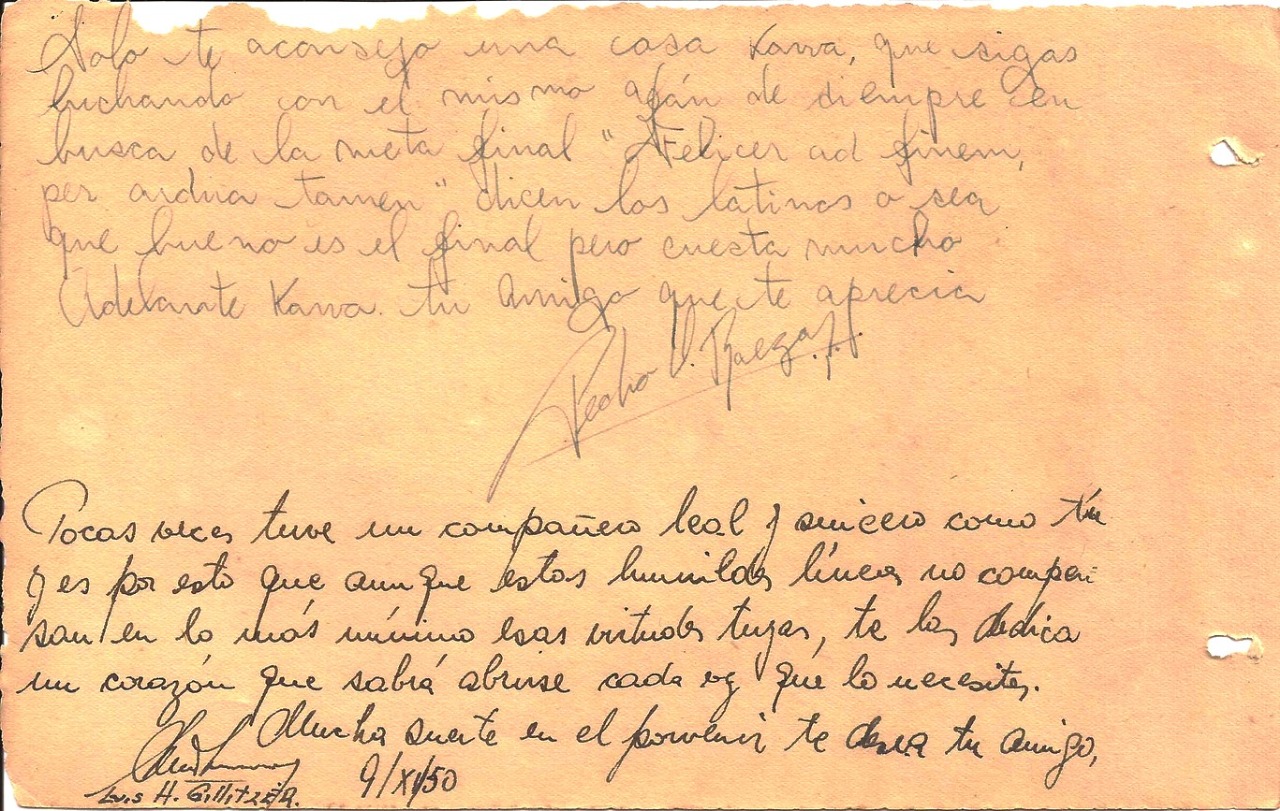 Solo te aconsejo una casa Kawa, que sigas
luchando con el mismo afán de siempre en
busca de la meta final "Felicer ad finem,
per ardua tamen" dicen los latinos o sea
que bueno es el final pero cuesta mucho
Adelante Kawa. tu Amigo que te aprecia
Pedro V. Baeza
Pocas veces tuve un compañero leal y sincero como tú
y es por esto que aunque estas humildes líneas no compen
san en lo más mínimo esas virtudes tuyas, te las dedica
un corazón que sabrá abrirse cada vez que lo necesites.
Mucha suerte en el porvenir te desea tu amigo,
Luis H. Gillitzer 9/XI/50